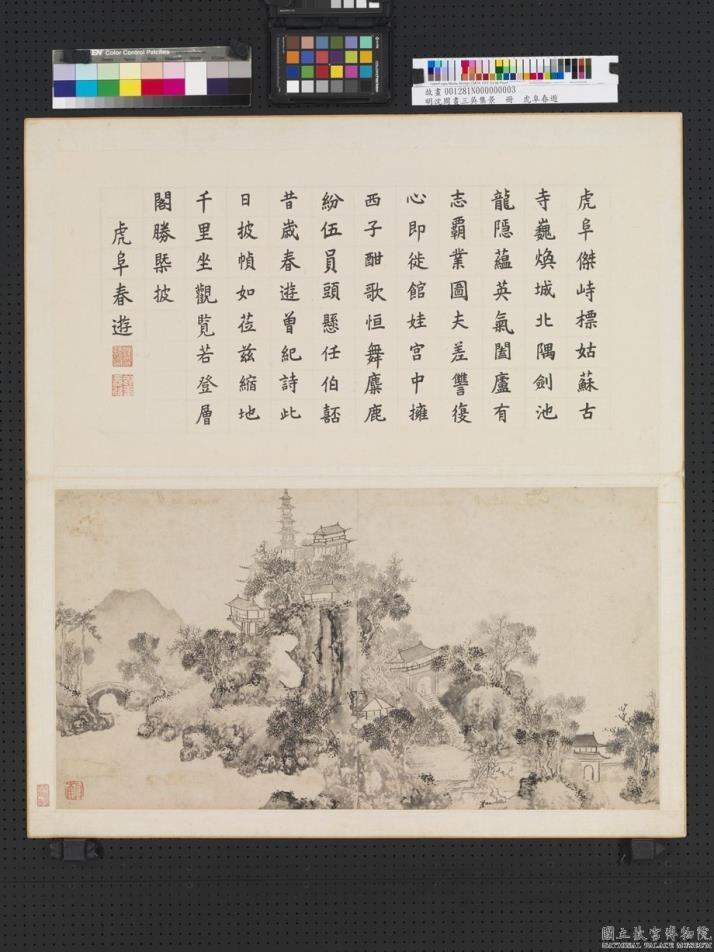 Color Control Patches
故畫001281N000000003
明沈周畫三吳集景　冊　虎阜春遊
虎阜傑峙標姑蘇古
寺巍煥城北隅劍池
龍隱蘊英氣闔廬有
志霸業圖夫差讐復
心即徙館娃宮中擁
西子酣歌恒舞麋鹿
紛伍員頭懸任伯嚭
昔歲春遊曾紀詩此
日披幀如莅茲縮地
千里坐觀覧若登層
閣勝槩披
虎阜春遊
國立故宮博物院
NATIONAL PALACE MUSEUM